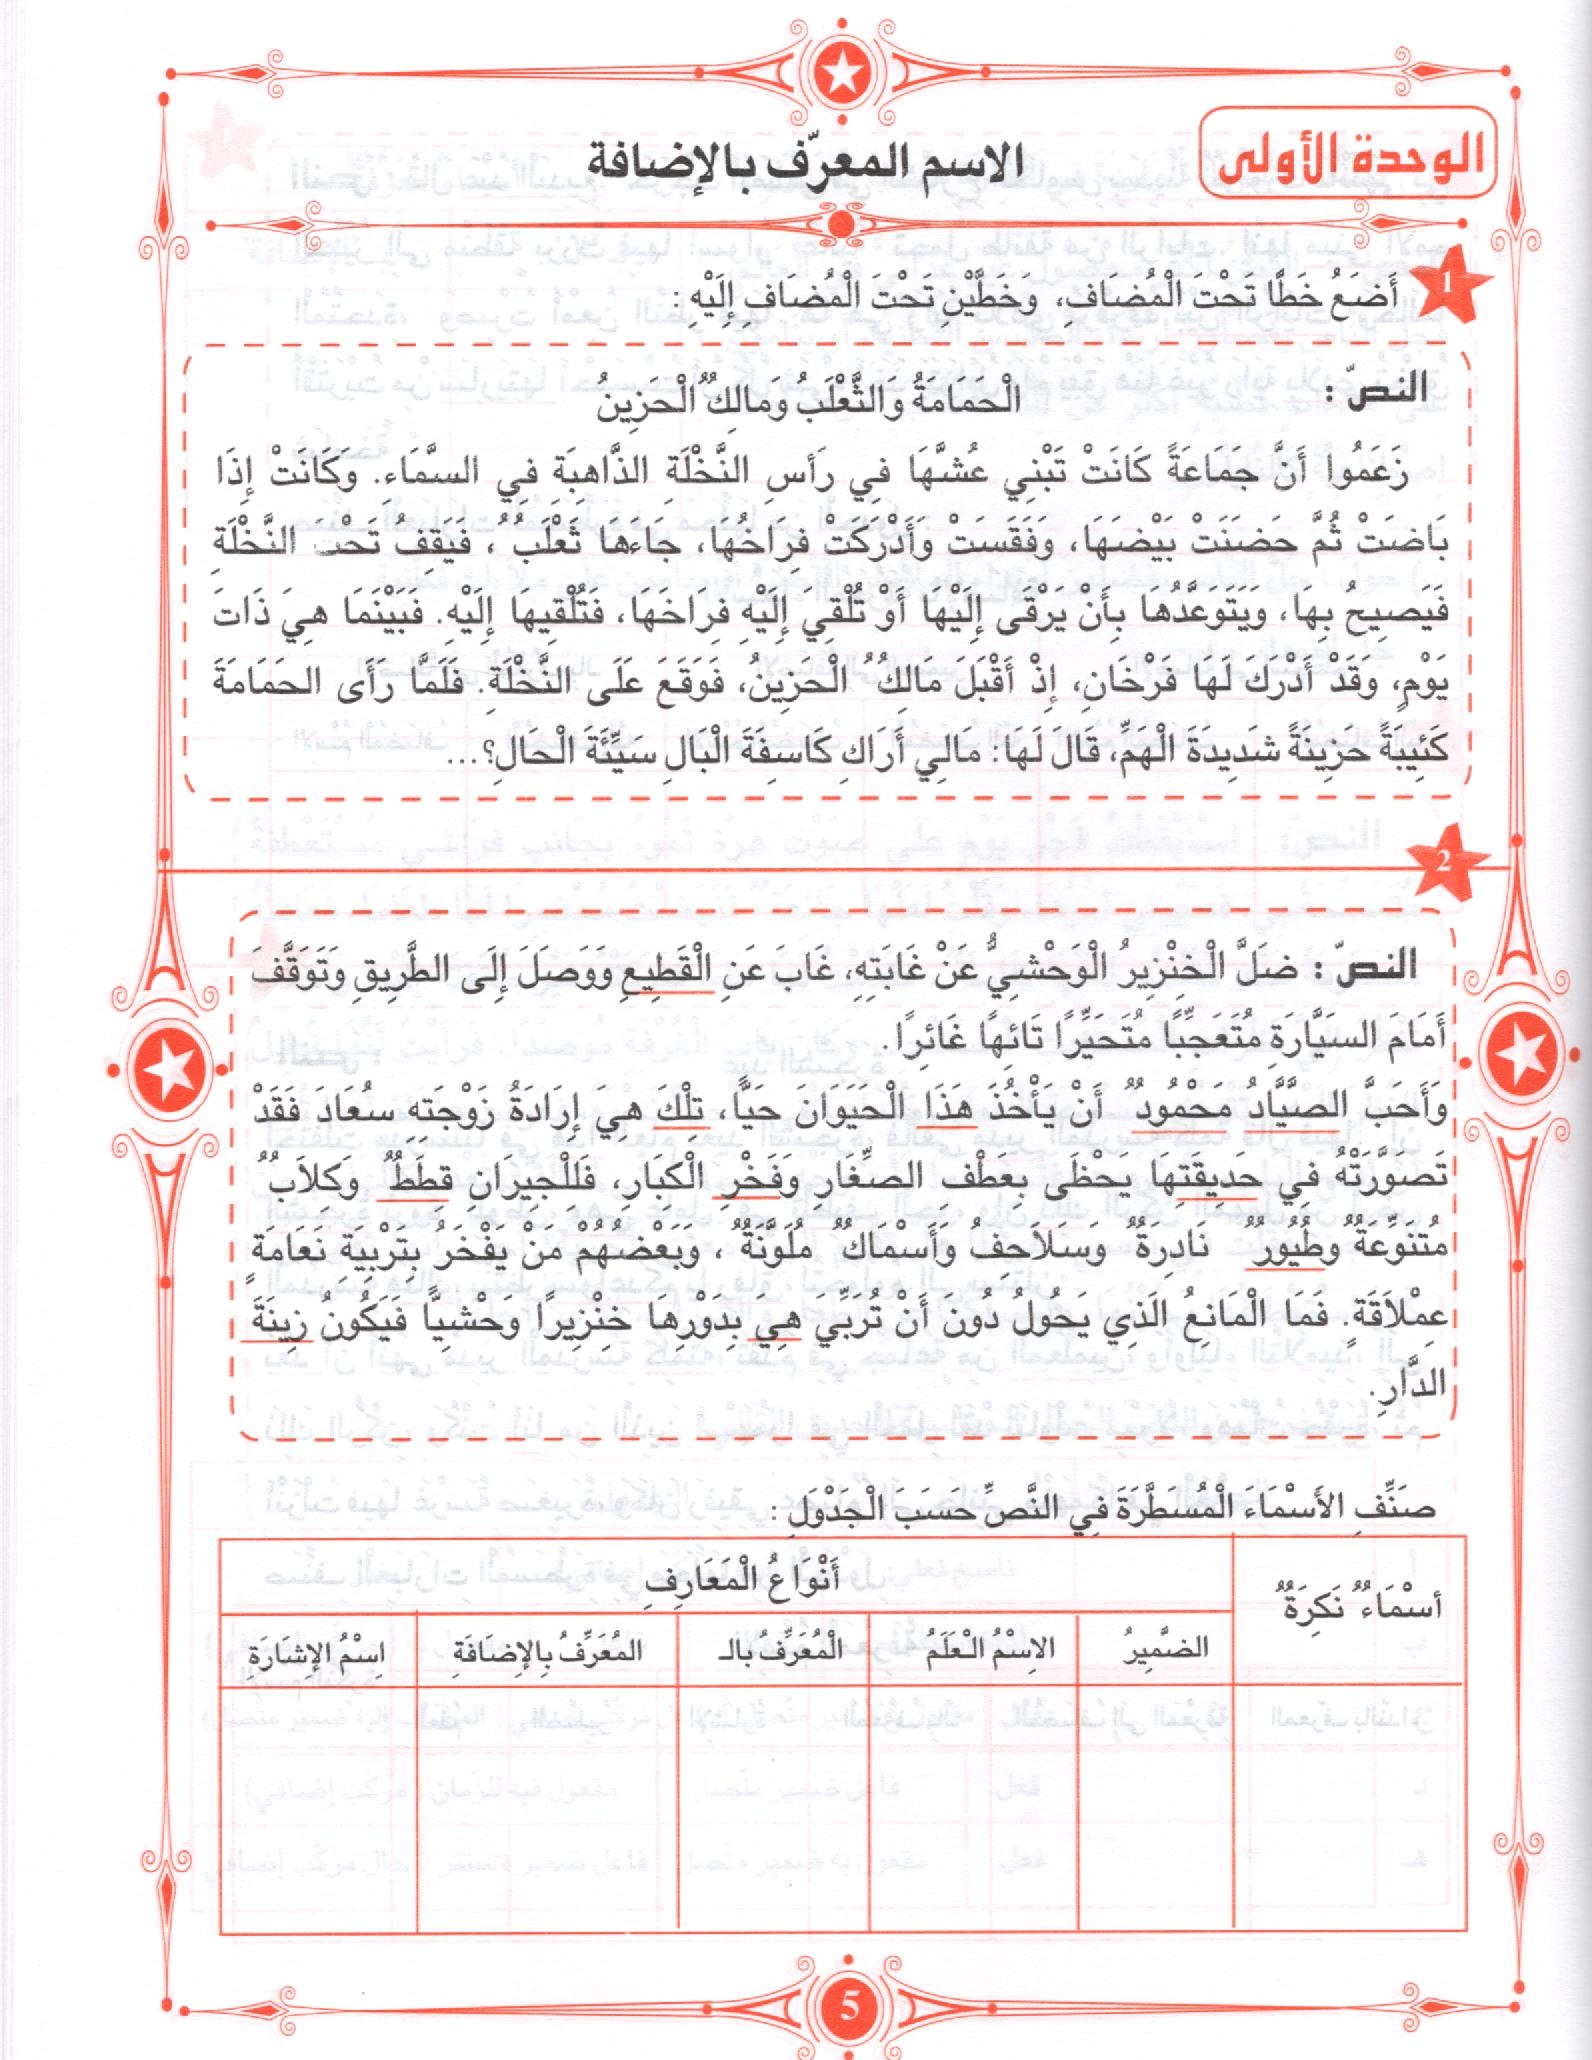 الوحدة الأولى
الاسم المعرّف بالإضافة
1
أَضَعُ خَطًّا تَحْتَ الْمُضَافِ، وَخَطَّيْنِ تَحْتَ الْمُضَافِ إِلَيْهِ :
النصّ : الْحَمَامَةُ وَالثَّعْلَبُ وَمَالِكٌ الْحَزِينُ
زَعَمُوا أَنَّ جَمَاعَةً كَانَتْ تَبْنِي عُشَّهَا فِي رَأْسِ النَّخْلَةِ الذَّاهِبَةِ فِي السَّمَاءِ. وَكَانَتْ إِذَا
بَاضَتْ ثُمَّ حَضَنَتْ بَيْضَهَا، وَفَقَسَتْ وَأَدْرَكَتْ فِرَاخُهَا، جَاءَهَا ثَعْلَبٌ، فَيَقِفُ تَحْتَ النَّخْلَةِ
فَيَصِيحُ بِهَا، وَيَتَوَعَّدُهَا بِأَنْ يَرْقَى إِلَيْهَا أَوْ تُلْقِيَ إِلَيْهِ فِرَاخَهَا، فَتُلْقِيهَا إِلَيْهِ. فَبَيْنَمَا هِيَ ذَاتَ
يَوْمٍ، وَقَدْ أَدْرَكَ لَهَا فَرْخَانِ، إِذْ أَقْبَلَ مَالِكٌ الْحَزِينُ، فَوَقَعَ عَلَى النَّخْلَةِ. فَلَمَّا رَأَى الحَمَامَةَ
كَئِيبَةً حَزِينَةً شَدِيدَةَ الْهَمِّ، قَالَ لَهَا: مَالِي أَرَاكِ كَاسِفَةَ الْبَالِ سَيِّئَةَ الْحَالِ؟...
2
النصّ : ضَلَّ الْخِنْزِيرُ الْوَحْشِيُّ عَنْ غَابَتِهِ، غَابَ عَنِ الْقَطِيعِ وَوَصَلَ إِلَى الطَّرِيقِ وَتَوَقَّفَ
أَمَامَ السَيَّارَةِ مُتَعَجِّبًا مُتَحَيِّرًا تَائِهًا غَائِرًا.
وَأَحَبَّ الصَّيَّادُ مَحْمُودٌ أَنْ يَأْخُذَ هَذَا الْحَيَوَانَ حَيًّا، تِلْكَ هِيَ إِرَادَةُ زَوْجَتِهِ سُعَادَ فَقَدْ
تَصَوَّرَتْهُ فِي حَدِيقَتِهَا يَحْظَى بِعَطْفِ الصِّغَارِ وَفَخْرِ الْكِبَارِ، فَلِلْجِيرَانِ قِطَطٌ وَكِلَابٌ
مُتَنَوِّعَةٌ وطُيُورٌ نَادِرَةٌ وَسَلَاحِفُ وَأَسْمَاكٌ مُلَوَّنَةٌ، وَبَعْضُهُمْ مَنْ يَفْخَرُ بِتَرْبِيَةِ نَعَامَةٍ
عِمْلَاقَةٍ. فَمَا الْمَانِعُ الَذِي يَحُولُ دُونَ أَنْ تُرَبِّيَ هِيَ بِدَوْرِهَا خِنْزِيرًا وَحْشِيًّا فَيَكُونُ زِينَةَ
الدَّارِ.
صَنِّفِ الأَسْمَاءَ الْمُسَطَّرَةَ فِي النَّصِّ حَسَبَ الْجَدْوَلِ :
أَسْمَاءٌ نَكِرَةٌ
أَنْوَاعُ الْمَعَارِفِ
الضَّمِيرُ
الاِسْمُ الْعَلَمُ
الْمُعَرِّفُ بالـ
المُعَرِّفُ بِالإِضَافَةِ
اِسْمُ الإِشَارَةِ
5